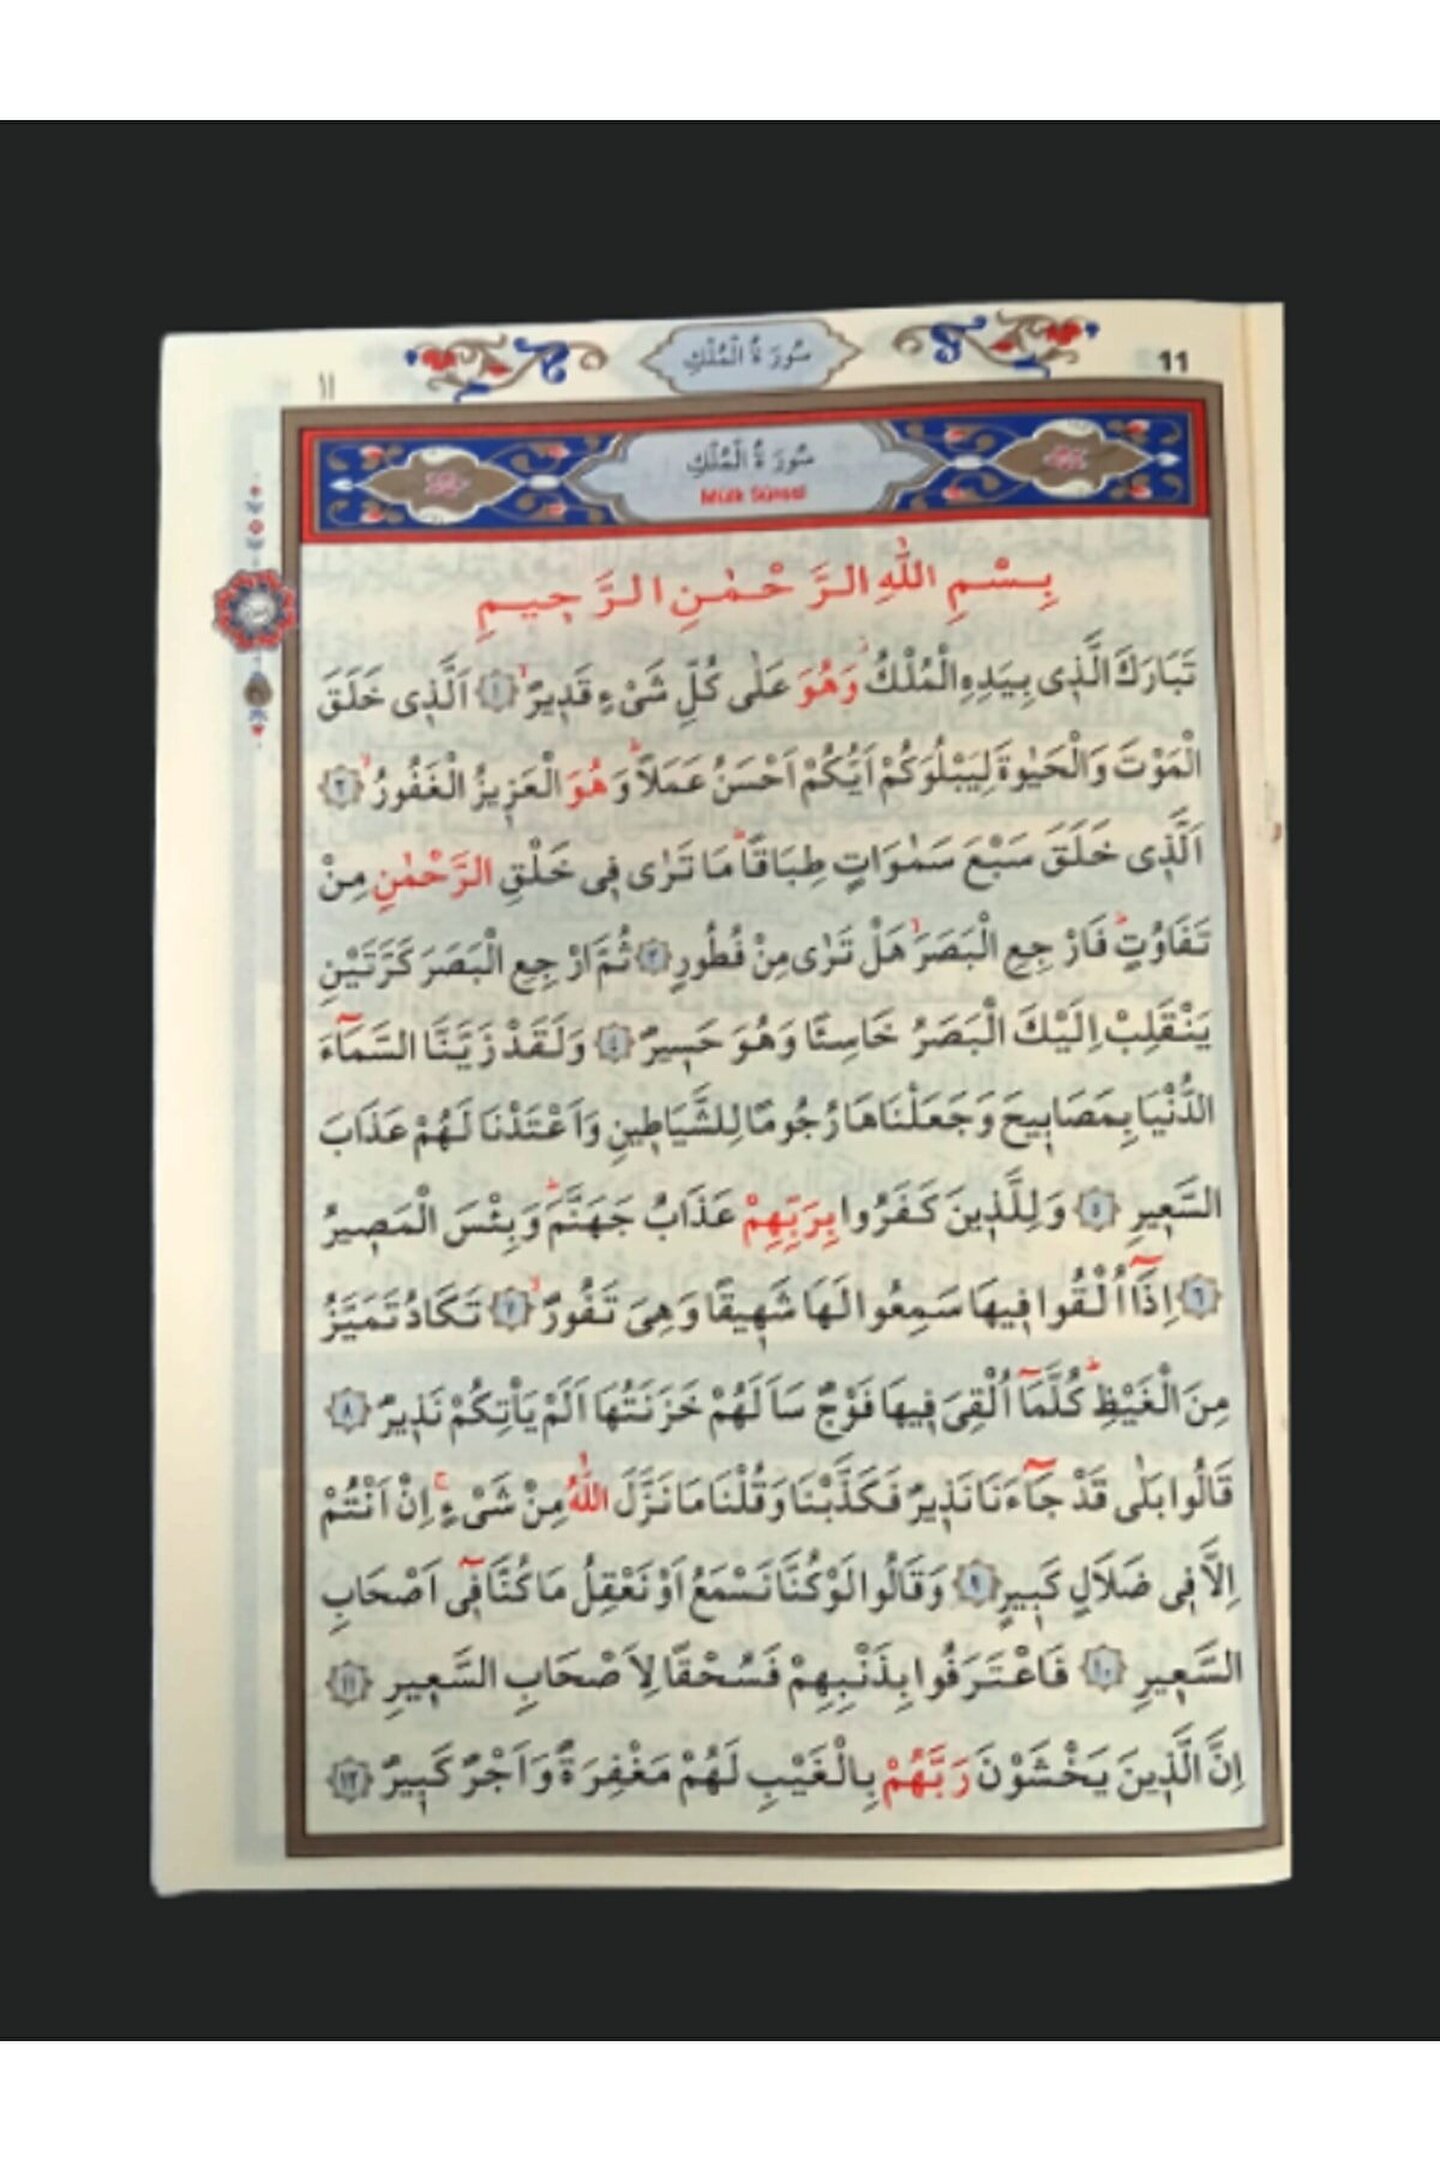 11 سُورَةُ الْمُلْكِ ١١
سُورَةُ الْمُلْكِ
Mülk Sûresi
بِسْمِ اللّٰهِ الرَّحْمٰنِ الرَّحِيمِ
تَبَارَكَ الَّذِى بِيَدِهِ الْمُلْكُۘ وَهُوَ عَلٰى كُلِّ شَىْءٍ قَدِيرٌۙ ﴿١﴾ اَلَّذِى خَلَقَ
الْمَوْتَ وَالْحَيٰوةَ لِيَبْلُوَكُمْ اَيُّكُمْ اَحْسَنُ عَمَلاًۜ وَهُوَ الْعَزِيزُ الْغَفُورُۙ ﴿٢﴾
اَلَّذِى خَلَقَ سَبْعَ سَمٰوَاتٍ طِبَاقًاۜ مَا تَرٰى فِى خَلْقِ الرَّحْمٰنِ مِنْ
تَفَاوُتٍۜ فَارْجِعِ الْبَصَرَۙ هَلْ تَرٰى مِنْ فُطُورٍ ﴿٣﴾ ثُمَّ ارْجِعِ الْبَصَرَ كَرَّتَيْنِ
يَنْقَلِبْ اِلَيْكَ الْبَصَرُ خَاسِئًا وَهُوَ حَسِيرٌ ﴿٤﴾ وَلَقَدْ زَيَّنَّا السَّمَٓاءَ
الدُّنْيَا بِمَصَابِيحَ وَجَعَلْنَاهَا رُجُومًا لِلشَّيَاطِينِ وَاَعْتَدْنَا لَهُمْ عَذَابَ
السَّعِيرِ ﴿٥﴾ وَلِلَّذِينَ كَفَرُوا بِرَبِّهِمْ عَذَابُ جَهَنَّمَۜ وَبِئْسَ الْمَصِيرُ
﴿٦﴾ اِذَٓا اُلْقُوا فِيهَا سَمِعُوا لَهَا شَهِيقًا وَهِىَ تَفُورُۙ ﴿٧﴾ تَكَادُ تَمَيَّزُ
مِنَ الْغَيْظِۜ كُلَّمَٓا اُلْقِىَ فِيهَا فَوْجٌ سَاَلَهُمْ خَزَنَتُهَا اَلَمْ يَاْتِكُمْ نَذِيرٌ ﴿٨﴾
قَالُوا بَلٰى قَدْ جَٓاءَنَا نَذِيرٌ فَكَذَّبْنَا وَقُلْنَا مَا نَزَّلَ اللّٰهُ مِنْ شَىْءٍۚ اِنْ اَنْتُمْ
اِلَّا فِى ضَلَالٍ كَبِيرٍ ﴿٩﴾ وَقَالُوا لَوْ كُنَّا نَسْمَعُ اَوْ نَعْقِلُ مَا كُنَّا فِٓى اَصْحَابِ
السَّعِيرِ ﴿١٠﴾ فَاعْتَرَفُوا بِذَنْبِهِمْ فَسُحْقًا لِاَصْحَابِ السَّعِيرِ ﴿١١﴾
اِنَّ الَّذِينَ يَخْشَوْنَ رَبَّهُمْ بِالْغَيْبِ لَهُمْ مَغْفِرَةٌ وَاَجْرٌ كَبِيرٌ ﴿١٢﴾